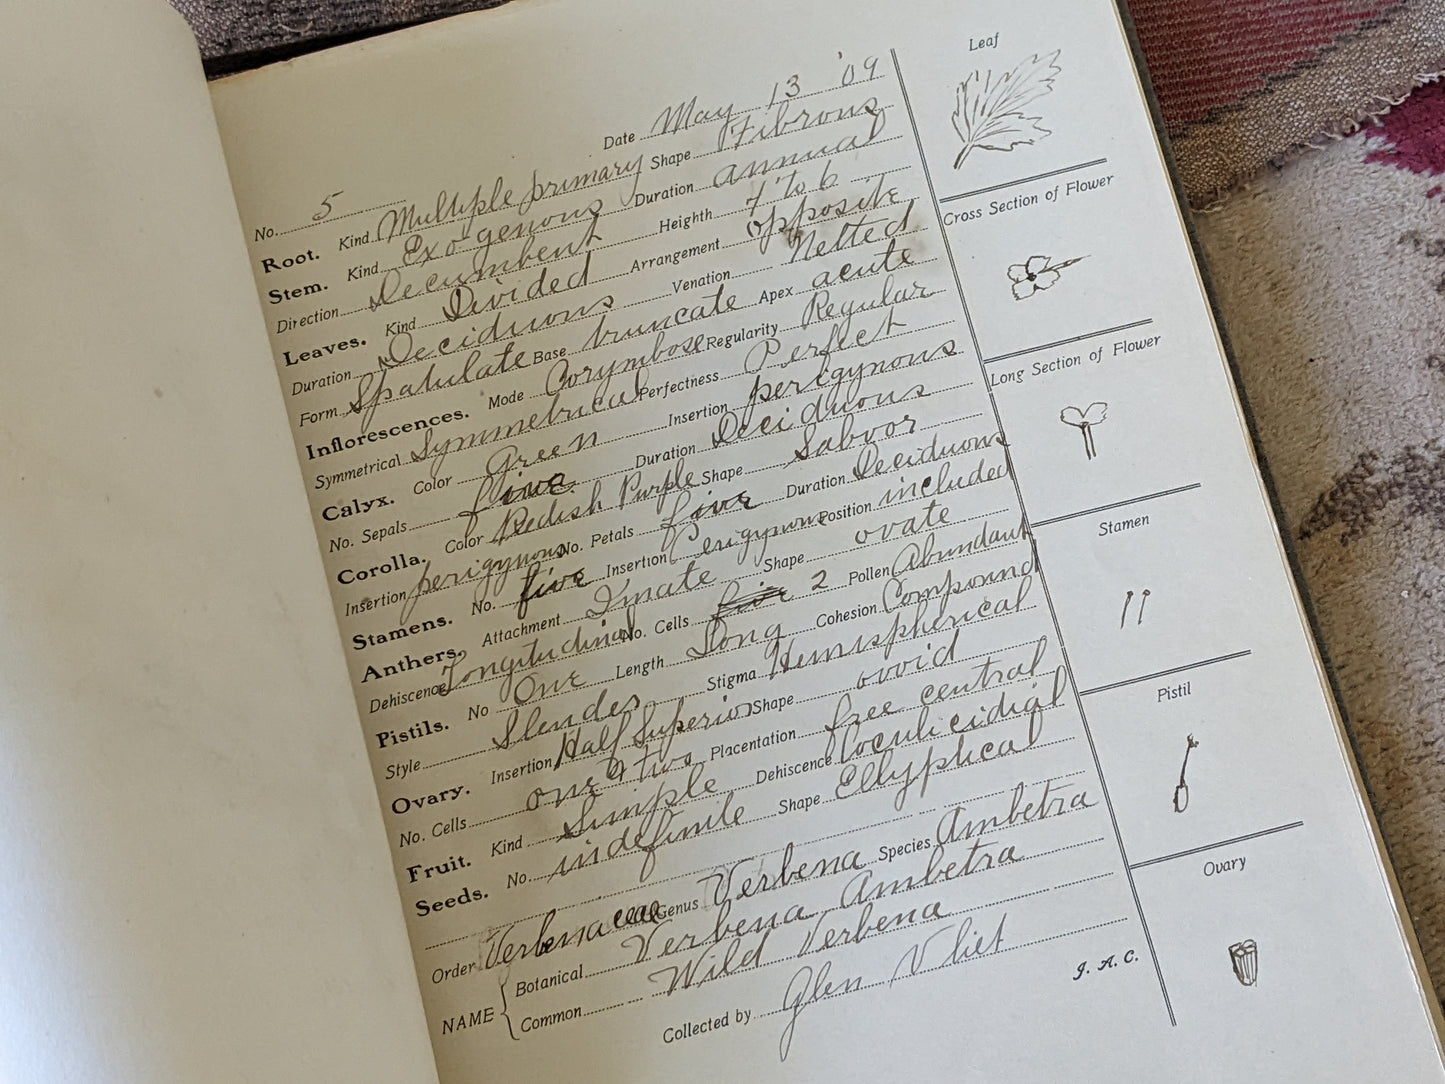 Date May 13 '09
No. 5
Root. Kind Multiple primary Shape Fibrous
Stem. Kind Exogenous Duration annual
Direction Decumbent Heighth 4 to 6
Leaves. Kind Divided Arrangement opposite
Duration Deciduous Venation Netted
Form Spatulate Base truncate Apex acute
Inflorescences. Mode Corymbose Regularity Regular
Symmetrical Symmetrical Perfectness Perfect
Calyx. Color Green Insertion perigynous
No. Sepals five Duration Deciduous
Corolla. Color Redish Purple Shape Salvor
Insertion perigynous No. Petals five Duration Deciduous
Stamens. No. five Insertion Perigynous Position included
Anthers. Attachment Inate Shape ovate
Dehiscence Longitudinal No. Cells five 2 Pollen Abundant
Pistils. No One Length Long Cohesion Compound
Style Slender Stigma Hemispherical
Ovary. Insertion Half Superior Shape ovoid
No. Cells one 4 two Placentation free central
Fruit. Kind Simple Dehiscence loculicidial
Seeds. No. indefinite Shape Ellyptical
Order Verbenaceae Genus Verbena Species Ambetra
NAME Botanical Verbena Ambetra
Common Wild Verbena
Collected by Glen Vliet
J. A. C.
Leaf
Cross Section of Flower
Long Section of Flower
Stamen
Pistil
Ovary